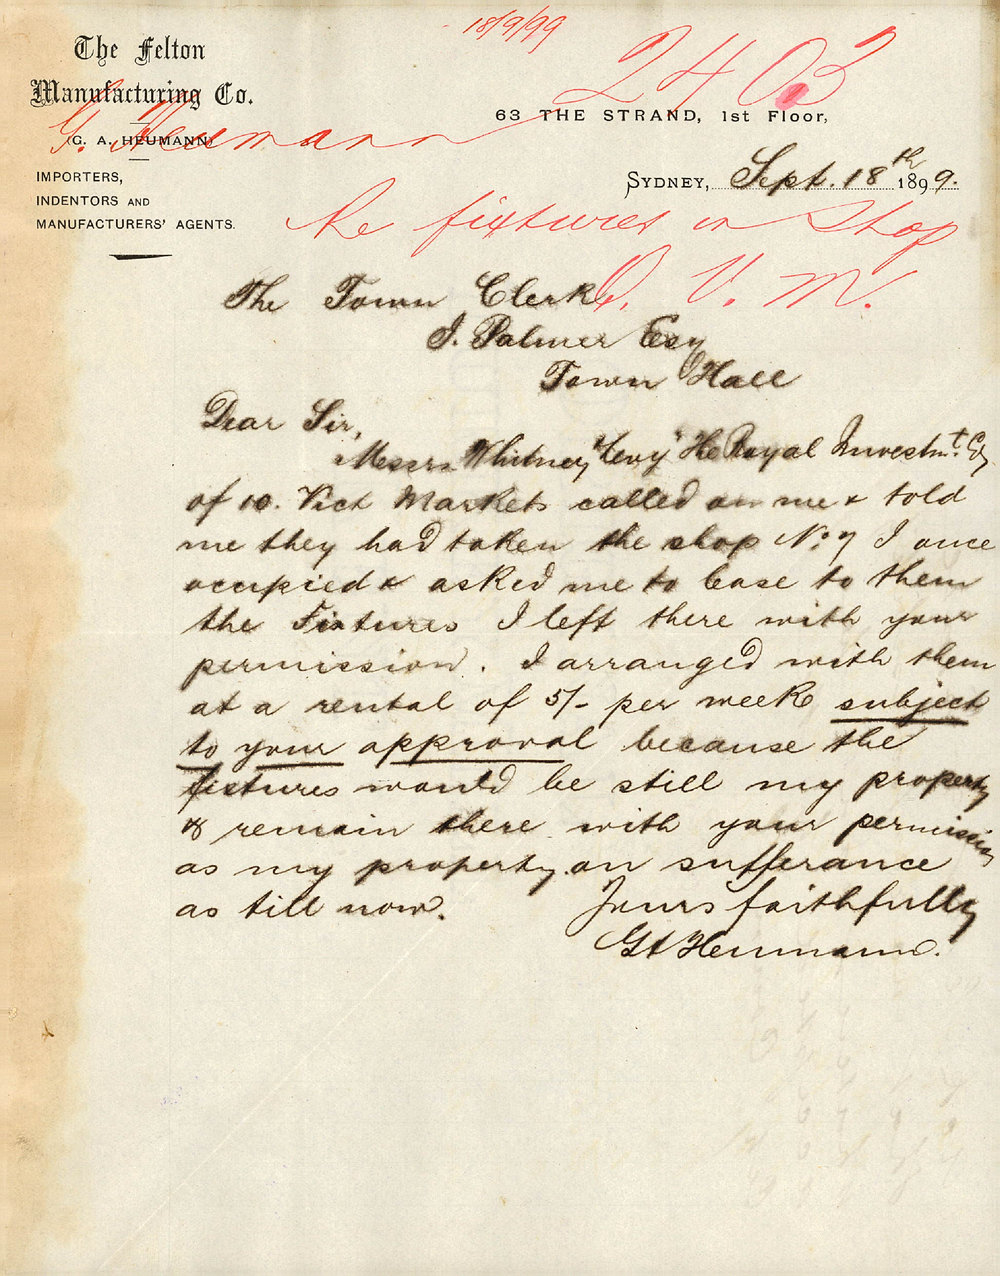 18/9/99
2403
The Felton
Manufacturing Co.
G. Heumann
(G. A. HEUMANN)
63 THE STRAND, 1st Floor,
IMPORTERS,
INDENTORS AND
MANUFACTURERS' AGENTS.
SYDNEY, Sept. 18th 1899.
Re fixtures in Shop
Q. V. M.
The Town Clerk
J. Palmer Esq
Town Hall
Dear Sir,
Messrs Whitney "Levy" The Royal Investmt. Cy
of 10. Vict Markets called on me & told
me they had taken the shop No. 7 I once
occupied & asked me to lease to them
the Fixtures I left there with your
permission. I arranged with them
at a rental of 5/- per week subject
to your approval because the
fixtures would be still my property
& remain there with your permission
as my property on sufferance
as till now.
Yours faithfully
GA Heumann.